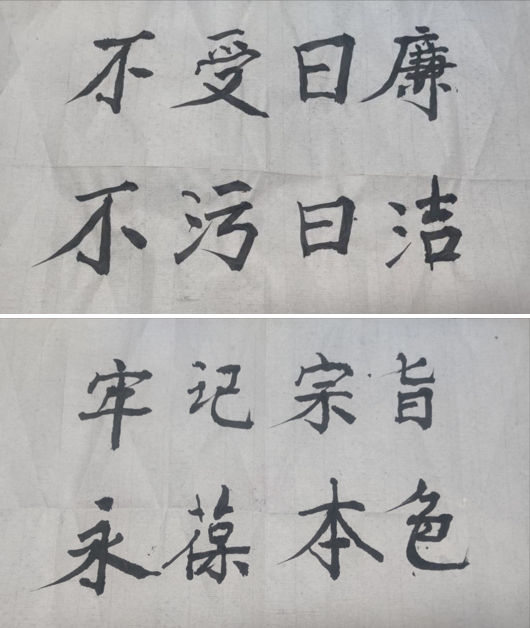 不受曰廉
不污曰洁
牢记宗旨
永葆本色